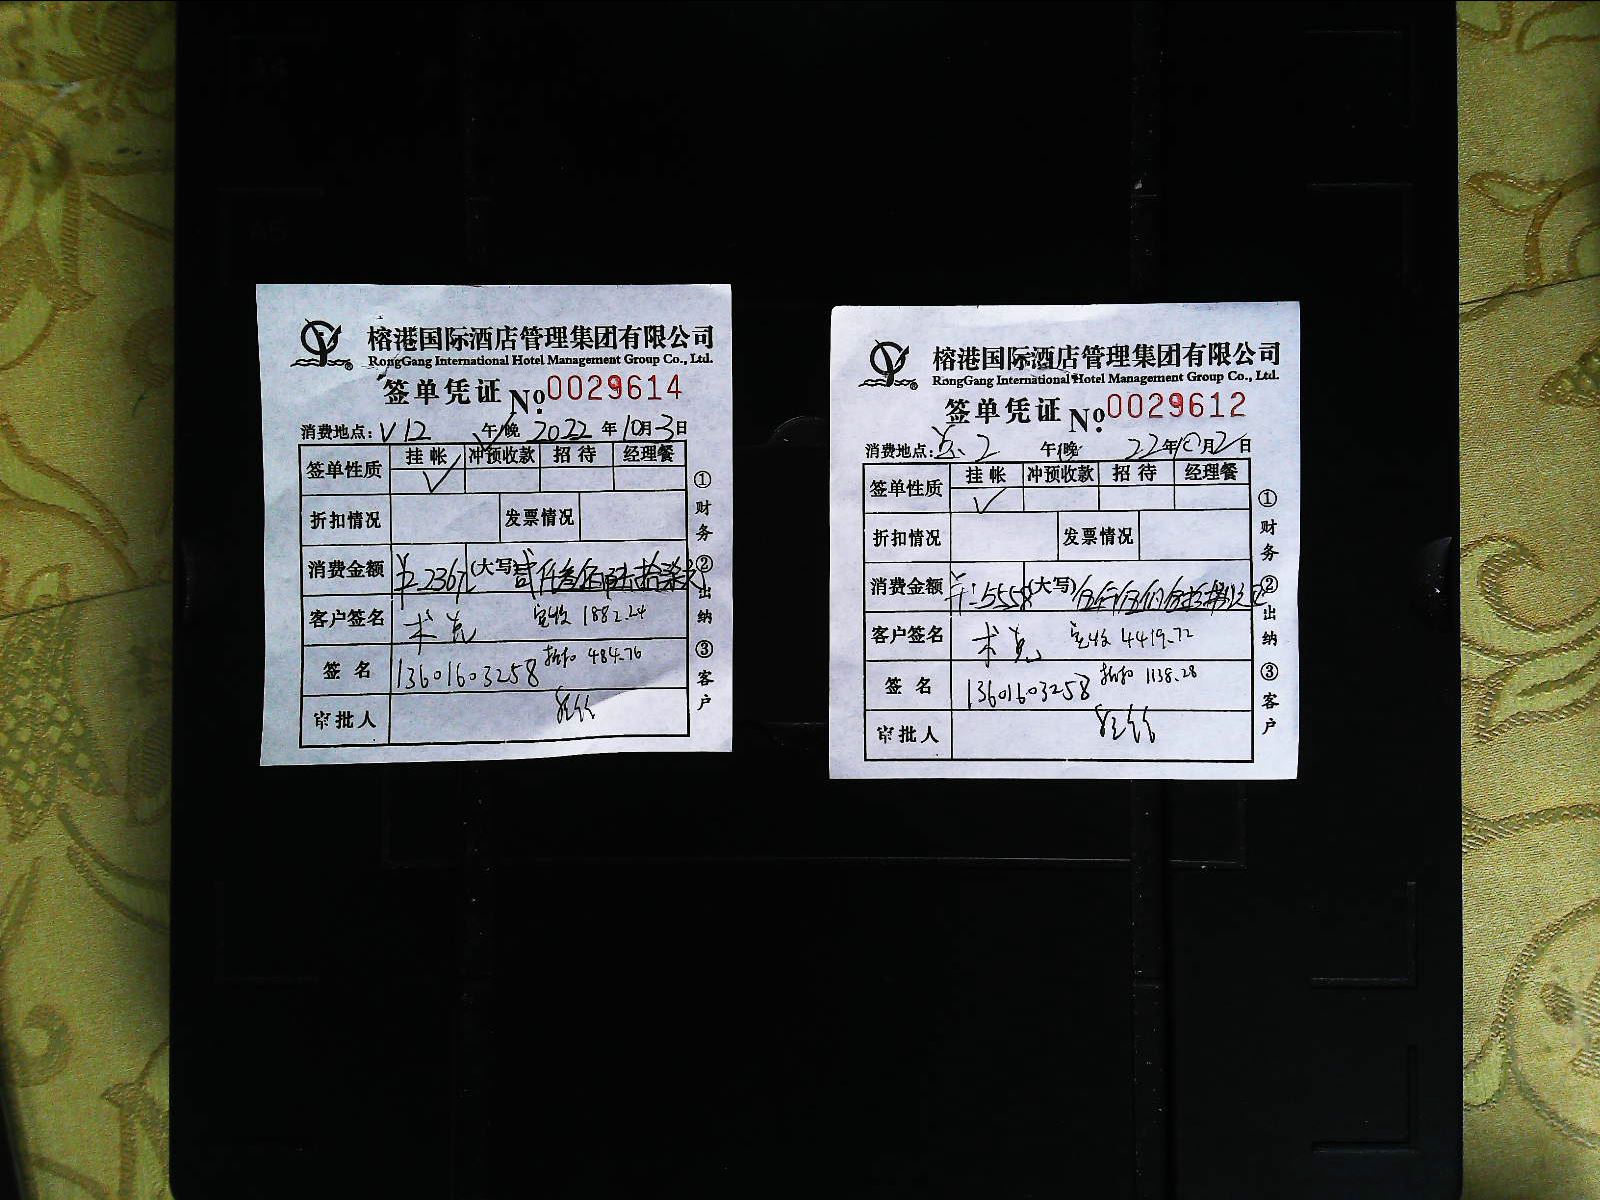 榕港国际酒店管理集团有限公司
RongGang International Hotel Management Group Co., Ltd.
签单凭证 No. 0029614
消费地点: V12 午/晚 2022 年 10 月 3 日
签单性质 挂帐 冲预收款 招待 经理餐
折扣情况 发票情况
消费金额 ¥2367 (大写) 贰仟叁佰陆拾柒元
客户签名 术克 实收 1882.24
签名 13601603258 折扣 484.76
审批人
①财务 ②出纳 ③客户
榕港国际酒店管理集团有限公司
RongGang International Hotel Management Group Co., Ltd.
签单凭证 No. 0029612
消费地点: 点、2 午/晚 22 年 10 月 2 日
签单性质 挂帐 冲预收款 招待 经理餐
折扣情况 发票情况
消费金额 ¥:5558 (大写)
客户签名 术克 实收 4419.72
签名 13601603258 折扣 1138.28
审批人
①财务 ②出纳 ③客户